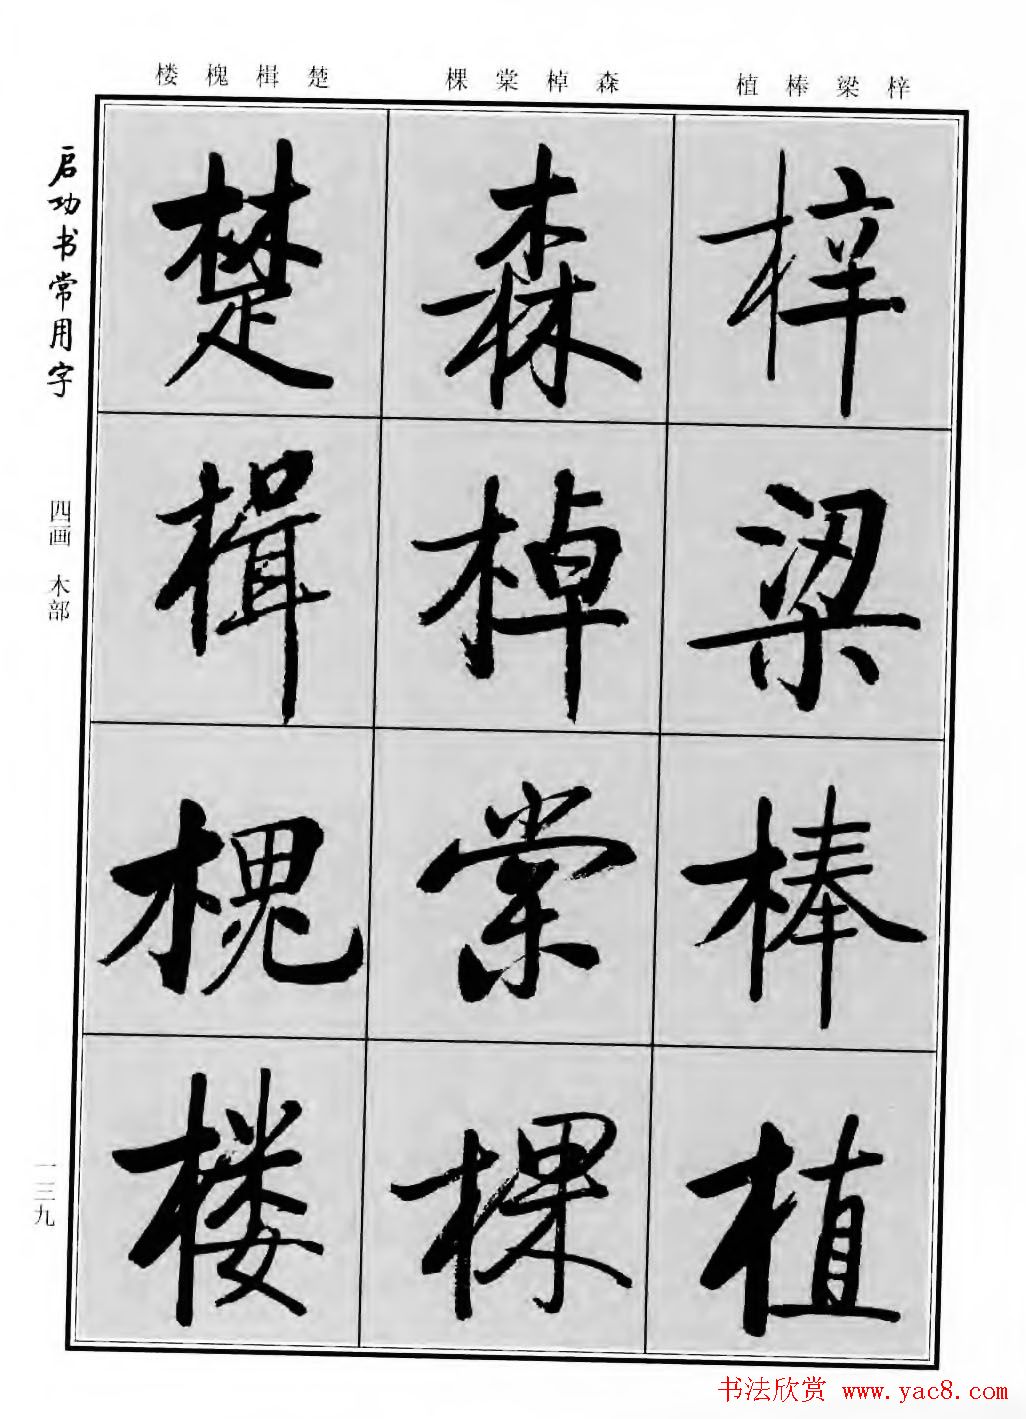 楼槐楫楚
棵棠棹森
植棒梁梓
启功书常用字
四画 木部
一三九
梓
梁
棒
植
森
棹
棠
棵
楚
楫
槐
楼
书法欣赏 www.yac8.com